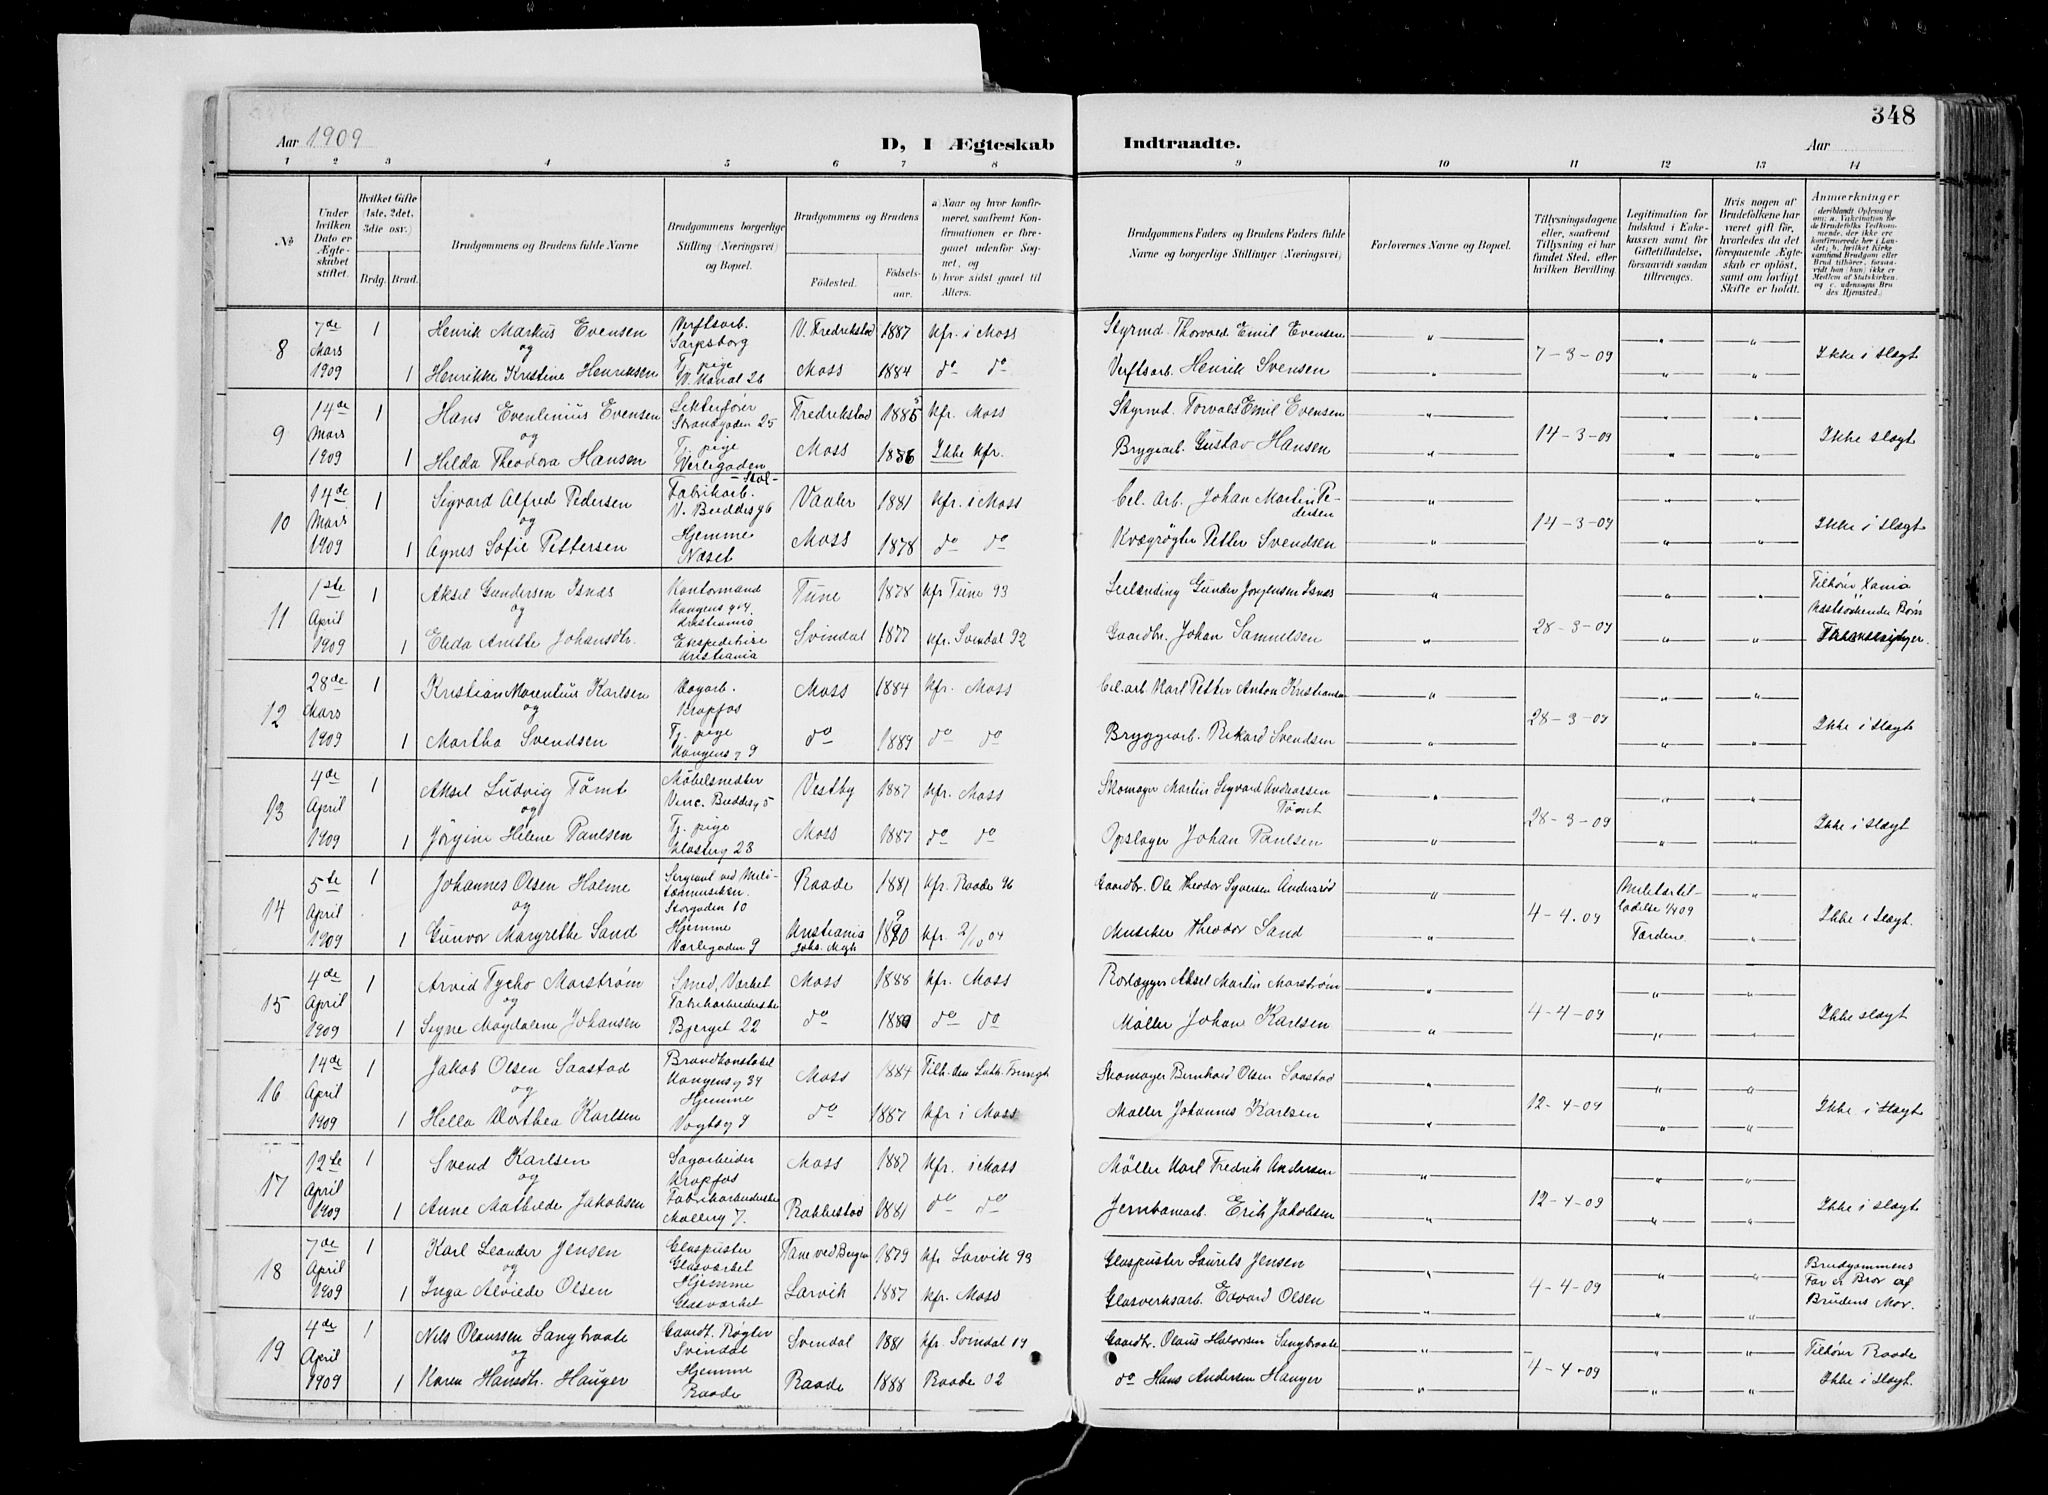 348
Aar 1909
D, I Ægteskab Indtraadte.
Aar
1 2 3 4 5 6 7 8 9 10 11 12 13 14
№
Under hvilken Dato er Ægteskabet stiftet.
Hvilket Gifte (1ste, 2det, 3die osv.)
Brdg. Brud.
Brudgommens og Brudens fulde Navne
Brudgommens borgerlige Stilling (Næringsvei) og Bopæl.
Brudgommens og Brudens
Fødested.
Fødsels-aar.
a) Naar og hvor konfirmeret, saafremt Konfirmationen er foregaaet udenfor Sognet, og
b) hvor sidst gaaet til Alters.
Brudgommens Faders og Brudens Faders fulde Navne og borgerlige Stillinger (Næringsvei)
Forlovernes Navne og Bopæl.
Tillysningsdagene eller, saafremt Tillysning ei har fundet Sted, efter hvilken Bevilling
Legitimation for Indskud i Enkekassen samt for Giftetilladelse, forsaavidt saadan tiltrænges.
Hvis nogen af Brudefolkene har været gift før, hvorledes da det foregaaende Ægteskab er opløst, samt om lovligt Skifte er holdt.
Anmerkninger
8 7de Mars 1909 1 Henrik Markus Evensen Verftsarb. Sarpsborg V. Fredrikstad 1887 Kfr. i Moss Styrmd. Thorvald Emil Evensen
og
1 Henrikke Kristine Henriksen Tj. pige V. Kanal 26 Moss 1884 do do Verftsarb. Henrik Svensen 7-3-09 Ikke i slægt
9 14de Mars 1909 1 Hans Evenlinius Evensen Lekterfører Strandgaden 25 Fredrikstad 1885 Kfr. Moss Styrmd. Torvald Emil Evensen
og
1 Hilda Theodora Hansen Tj. pige Værlegaden Moss 1886 Ikke Kfr. Bryggearb. Gustav Hansen 14-3-09 Ikke slægt
10 14de Mars 1909 1 Sigvard Alfred Pedersen Fabrikarb. V. Buddesg 6 Vaaler 1881 Kfr. i Moss Cel. Arb. Johan Martin Pedersen
og
1 Agnes Sofie Pettersen Hjemme Næset Moss 1878 do do Kvægrøgter Petter Svendsen 14-3-09 Ikke i slægt
11 1ste April 1909 1 Aksel Gundersen Isnæs Kontormand Kongens g 4. Kristiania Tune 1878 Kfr Tune 93 Gunder Jørgensen Isnæs
og
1 Elida Anette Johansdtr. Ekspeditrise Kristiania Svindal 1877 Kfr. Svindal 92 Gaardbr. Johan Samuelsen 28-3-09 Tilhører Xania
12 28de Mars 1909 1 Kristian Marentius Karlsen Sagarb. Krapfos Moss 1884 Kfr. Moss Cel. arb Karl Petter Anton Kristiansen
og
1 Martha Svendsen Tj. pige Kongens g 9 do 1889 do do Bryggearb. Rikard Svendsen 28-3-09 Ikke i Slægt
13 4de April 1909 1 Aksel Ludvig Tømt Møbelsnedker Vinc. Buddesg 5 Vestby 1887 Kfr. Moss Skomager Martin Sigvard Andreassen Tømt
og
1 Jørgine Helene Paulsen Tj. pige Klosterg 23 Moss 1887 do do Opslager Johan Paulsen 28-3-09 Ikke i slægt
14 5te April 1909 1 Johannes Olsen Holme Sergeant ved Militærmusikken. Storgaden 10 Raade 1881 Kfr. Raade 96 Gaardbr. Ole Theodor Syversen Andersrød
og
1 Gunvor Margrethe Sand Hjemme Værlegaden 9 Kristiania Kfr. 2/10 04 Musiker Theodor Sand 4-4.09 Ikke i Slægt
15 4de April 1909 1 Arvid Tycho Marstrøm Smed, Værket Moss 1888 Kfr. Moss Rørlægger Aksel Martin Marstrøm
og
1 Signe Magdalene Johansen Fabrikarbeiderske Bjerget 22 do do do Møller Johan Karlsen 4-4-09 Ikke slægt
16 14de April 1909 1 Jakob Olsen Saastad Brandkonstabel Kongensg 34 Moss 1884 Tilh. den Luth. Frimgh Skomager Bernhard Olsen Saastad
og
1 Hella Dorthea Karlsen Hjemme Vogtsg 9 do 1887 Kfr i Moss Møller Johannes Karlsen 12-4-09 Ikke i Slægt
17 12te April 1909 1 Svend Karlsen Sagarbeider Krapfos Moss 1887 Kfr. i Moss Møller Karl Fredrik Andersen
og
1 Anne Mathilde Jakobsen Fabrikarbeiderske Møllerg 7. Rakkestad 1881 do do Jernbanearb. Erik Jakobsen 12-4-09 Ikke i slægt
18 7de April 1909 1 Karl Leander Jensen Glaspuster Glasværket Fane ved Bergen 1879 Kfr Larvik 93 Glaspuster Laurits Jensen
og
1 Inga Alvide Olsen Hjemme Glasværket Larvik 1887 Kfr. Moss Glasverksarb. Edvard Olsen 4-4-09 Brudgommens Far er Bror af Brudens Mor.
19 4de April 1909 1 Nils Olaussen Langbraate Gaardt. Røgter Svindal Svendal 1881 Kfr. Svindal Gaardbr. Olaus Halvorsen Langbraate
og
1 Karen Hansdtr. Hauger Hjemme Raade Raade 1888 Raade 02 do Hans Andersen Hauger 4-4-09 Tilhører Raade Ikke i Slægt.